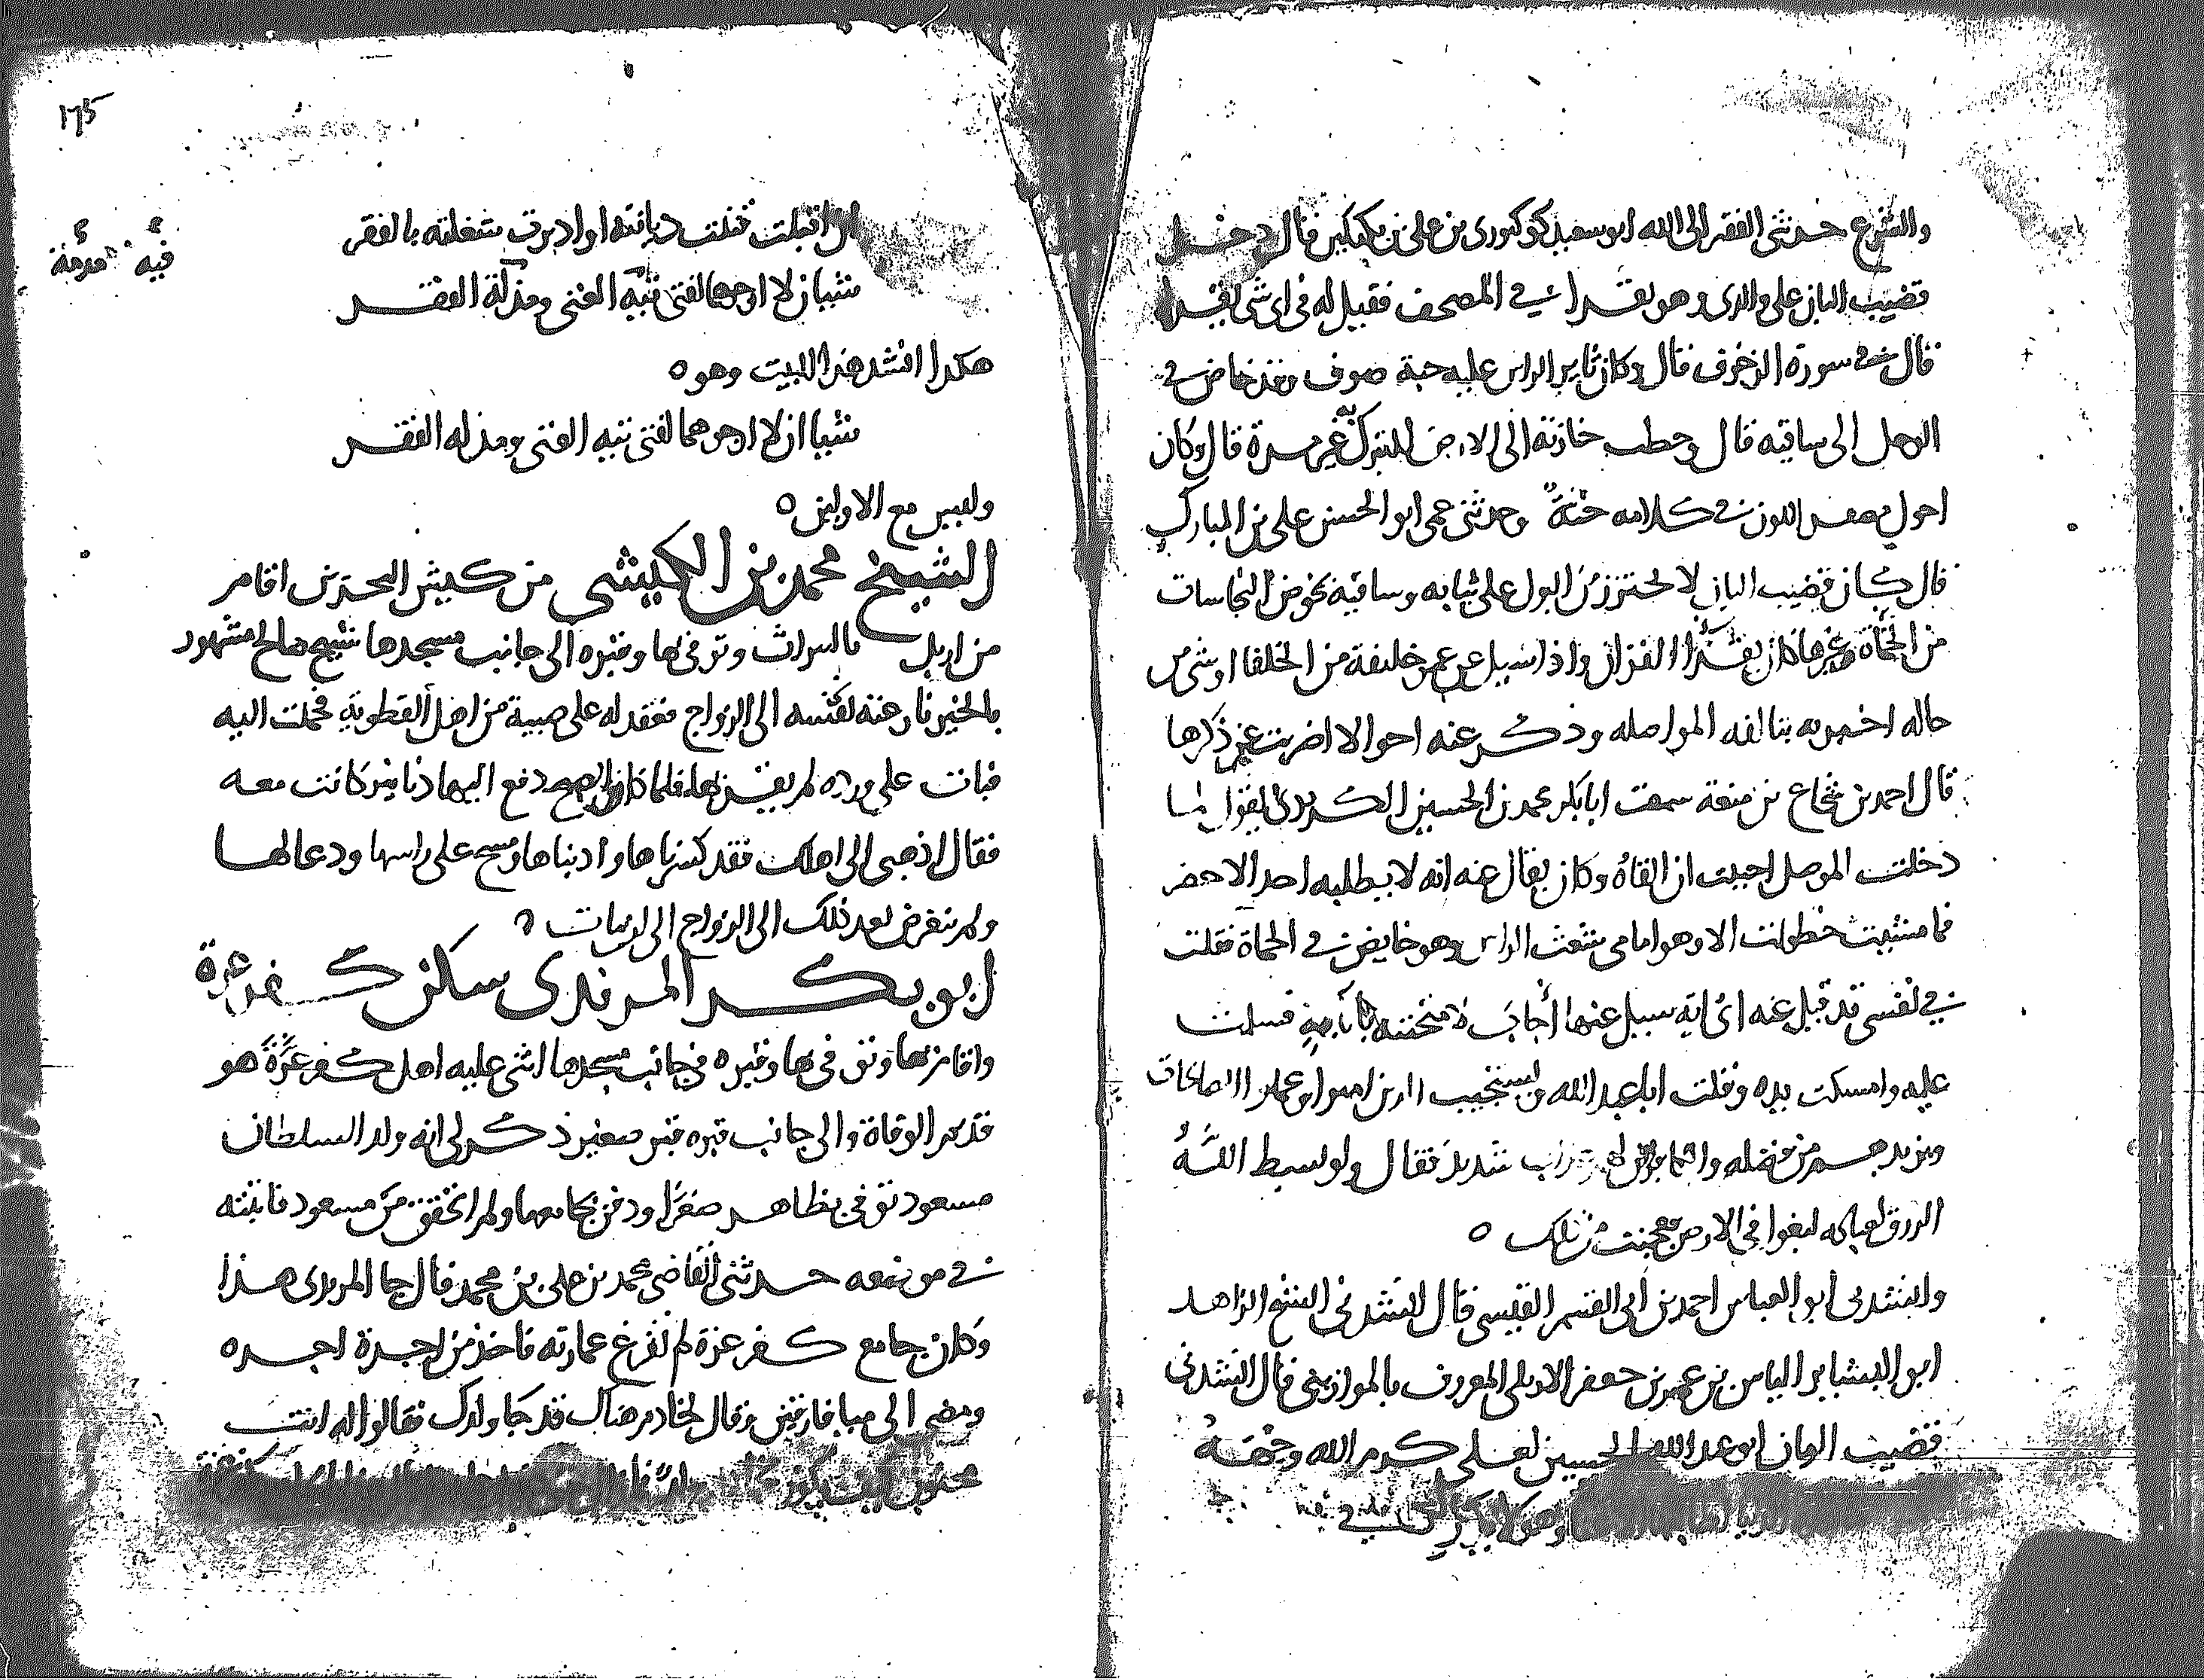 والشرع حدثني الفقير الى الله ابو سعيد كوكبوري بن علي بن بكتكين قال دخل
قضيب البان على والدي وهو يقرا في المصحف فقيل له في اى شى يقرا
قال في سورة الزخرف قال وكان ثاير الراس عليه جبة صوف وقد خاض في
الوحل الى ساقيه قال وحطب خازنه الى الارض للتبرك به غير مرة قال وكان
احول اللون في كلامه خنة وحدثني عمي ابو الحسن علي بن المبارك
قال كان قضيب البان لا يحترز من البول على ثيابه وساقيه يخوض النجاسات
من الحمأة وغيرها كان يقرا القران واذا سيل عن عمر خليفة من الخلفا او شى من
حاله اخبر به بتا لغة المواصله وذكر عنه احوالا اضربت عن ذكرها
قال احمد بن شجاع بن منعة سمعت ابا بكر محمد بن الحسين الكردي يقول لما
دخلت الموصل احببت ان القاه وكان يقال عنه انه لا يطلبه احد الا حضر
فما مشيت خطوات الا وهو امامي شعث الراس وهو خايض في الحماة فقلت
في نفسي قد قيل عنه اى اية سيل عنها اجاب لامتحننه بآية فسلمت
عليه وامسكت بيده وقلت ابا عبد الله ويستجيب الذين امنوا وعملوا الصالحات
ويزيدهم من فضله والكافرون لهم عذاب شديد فقال ولو بسط الله
الرزق لعباده لبغوا في الارض فعجبت من ذلك ه
وانشدني ابو العباس احمد بن ابي القسم القيسي قال انشدني الشيخ الزاهد
ابو البشاير الياس بن عمر بن جعفر الاربلي المعروف بالموازيني قال انشدني
قضيب البان ابو عبد الله الحسين لعلي كرم الله وجهه
١٦٥
ان اقبلت قتلت ديانته او ادبرت شغلته بالفقر
شيئان لا ارجوهما لفتى تيه الغنى ومذلة الفقر
فيه
هكذا انشد هذا البيت وهو ه
شيئان لا ارجوهما لفتى تيه الغنى ومذله الفقر
وليس مع الاولين ه
الشيخ محمد بن الكيشي من كيش البحرين اقام
من اربل بالبراث وتوفى بها وقبره الى جانب مسجدها شيخ صالح مشهور
بالخير نازعته نفسه الى الزواج فعقد له على صبية من اهل القطوية فحملت اليه
فبات على ورده لم يقربها فلما كان الصبح دفع اليها دنانير كانت معه
فقال اذهبي الى اهلك فقد كسرناها وادبناها ومسح على راسها ودعا لها
ولم يتعرض بعد ذلك الى الزواج الى ان مات ه
ابو بكر المرندي سكن كفر عزة
واقام بها وتوفى بها وقبره في جانب مسجدها اثنى عليه اهل كفر عزة هو
قديم الوفاة والى جانب قبره قبر صغير ذكر لي انه ولد السلطان
مسعود توفي بظاهر ودفن بجامعها ولم اتحقق من مسعود فاثبته
في موضعه حدثني القاضي محمد بن علي بن محمد قال جا المرندي هذا
وكان جامع كفر عزة لم تفرغ عمارته فاخذ من اجرة اجره
ومضى الى ميافارقين وقال لخادم هناك قد جا ولدك فقالوا له انت